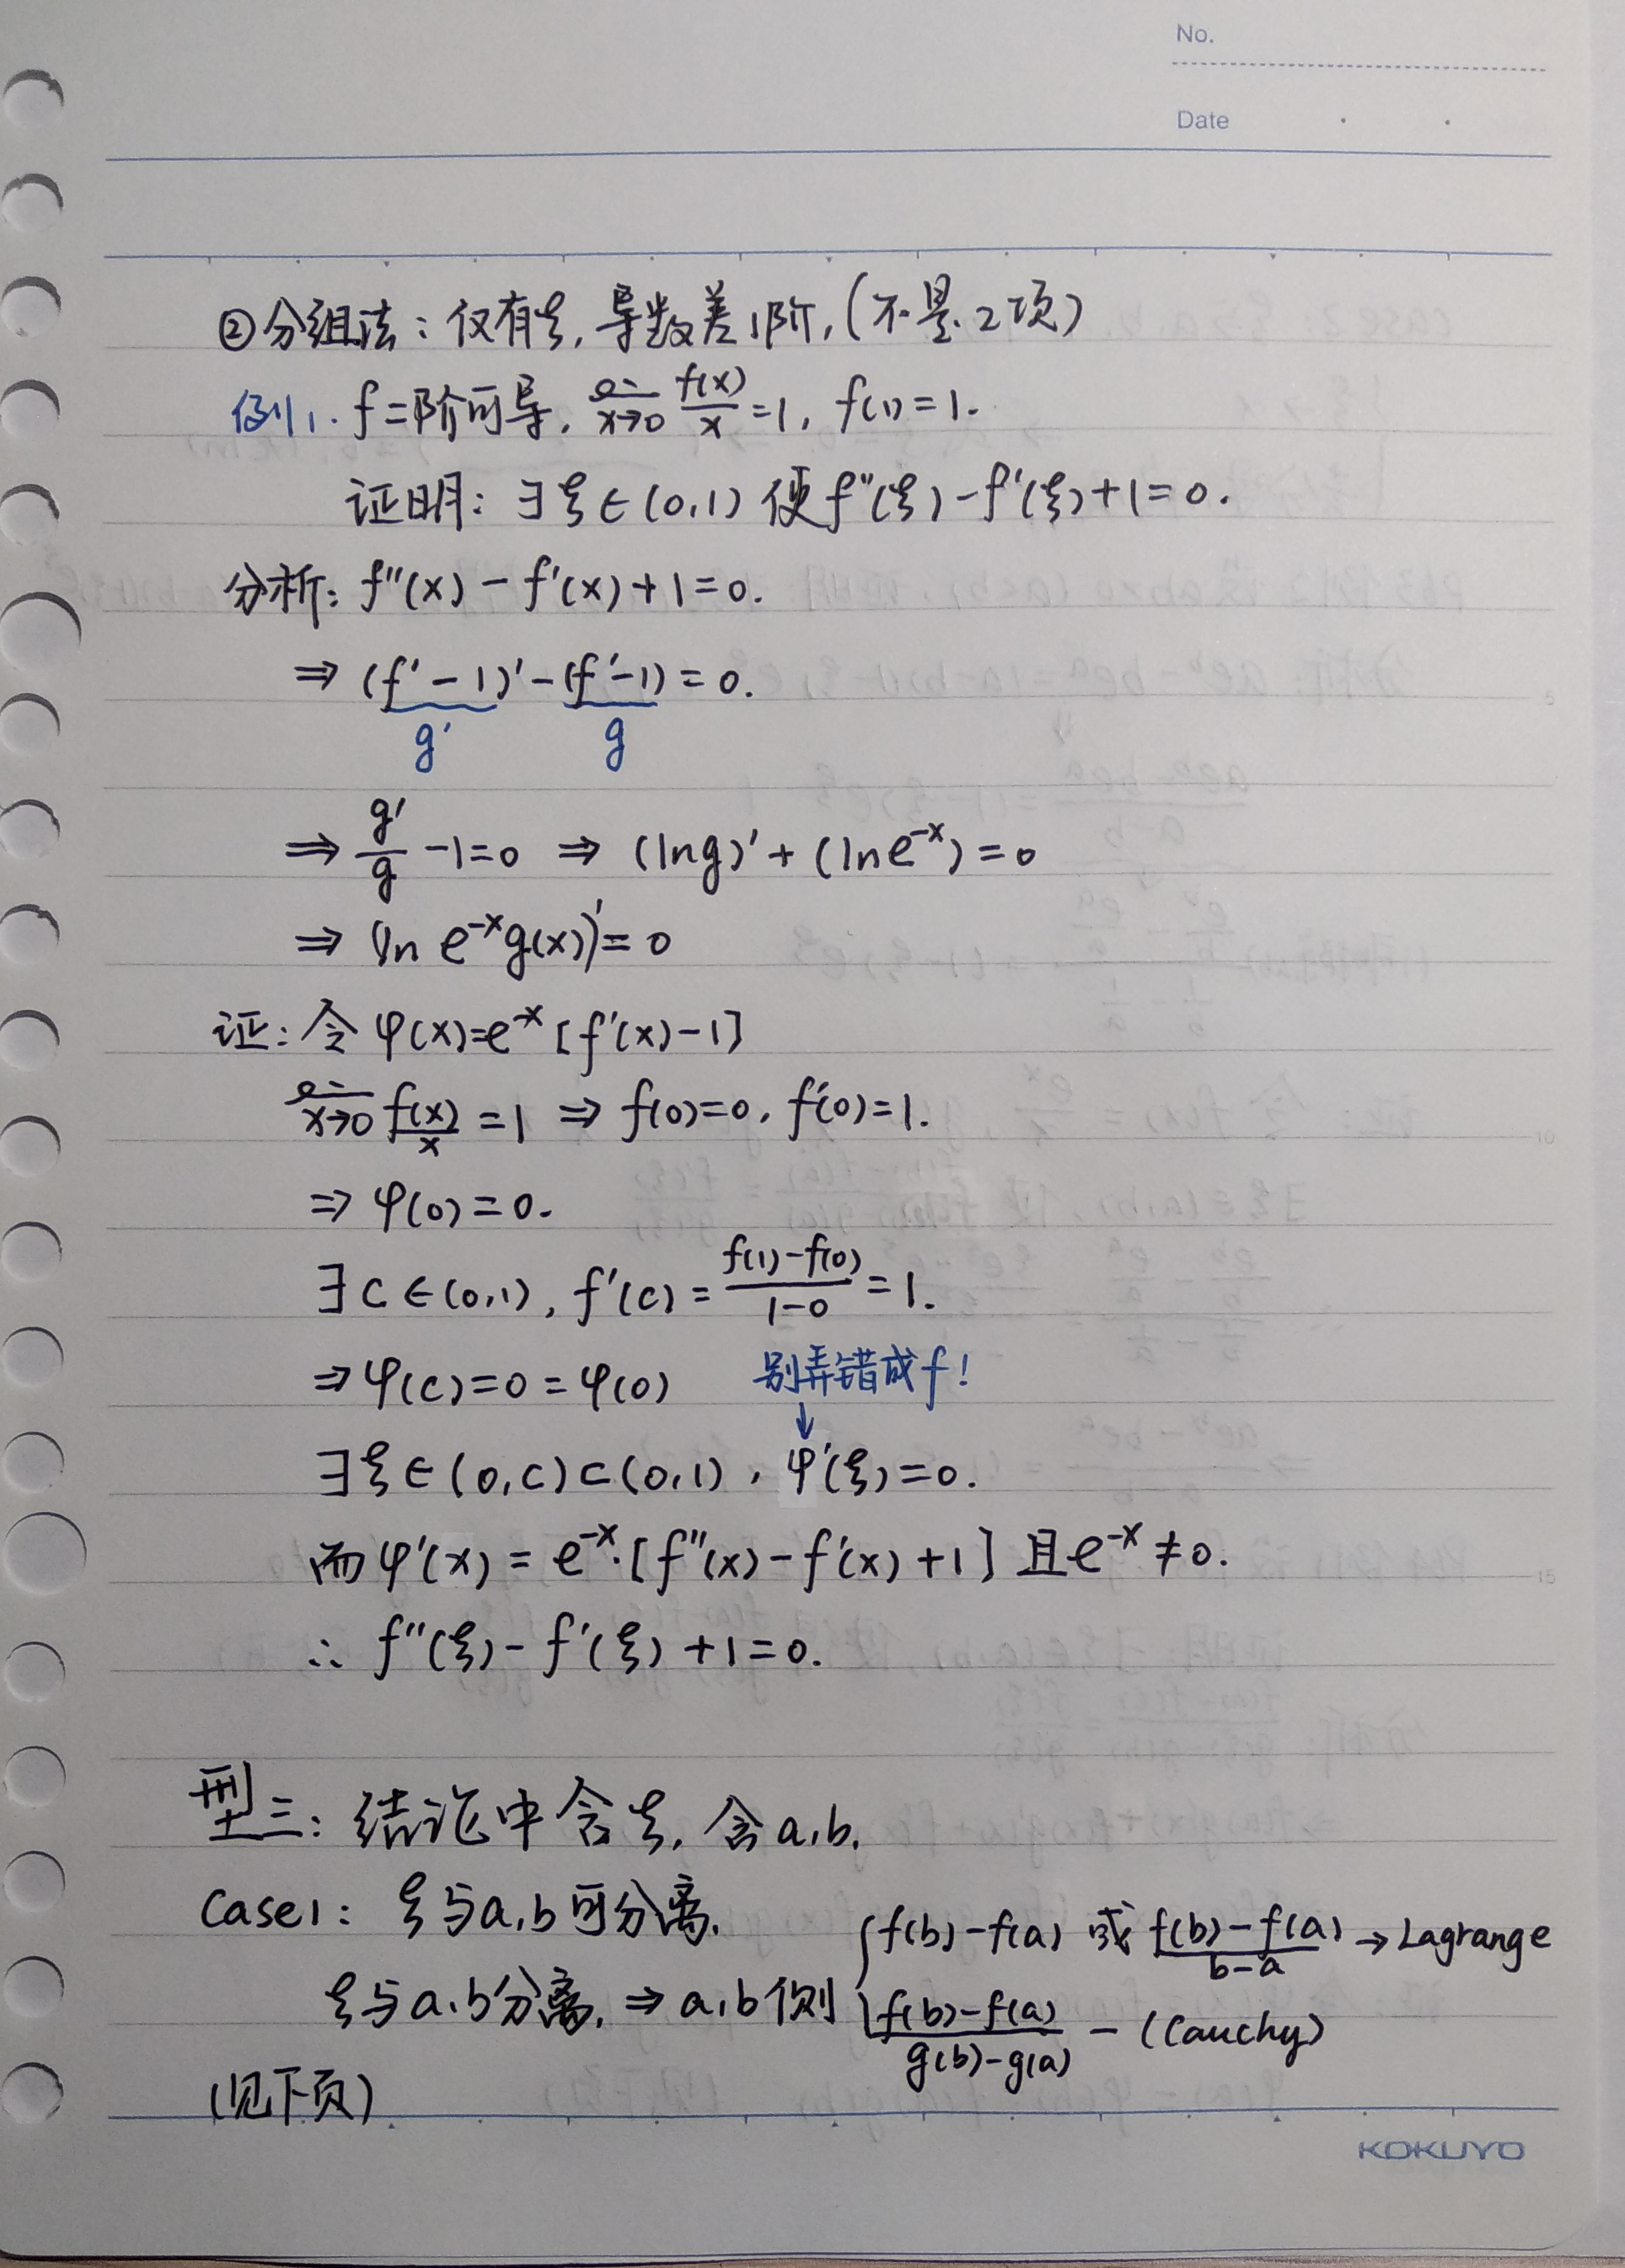 No.
Date
②分组法：仅有ξ，导数差1阶，(不是2项)
例1. f二阶可导，lim x→0 f(x)/x =1，f(1)=1.
证明：∃ξ∈(0,1) 使f''(ξ)-f'(ξ)+1=0.
分析：f''(x)-f'(x)+1=0.
⇒ (f'-1)'-(f'-1)=0.
g' g
⇒ g'/g -1=0 ⇒ (ln g)'+(ln e^{-x})=0
⇒ (ln e^{-x}g(x))'=0
证：令 φ(x)=e^{-x}[f'(x)-1]
lim x→0 f(x)/x =1 ⇒ f(0)=0，f'(0)=1.
⇒ φ(0)=0.
∃c∈(0,1)，f'(c)= (f(1)-f(0))/(1-0) =1.
⇒φ(c)=0=φ(0) 别弄错成f！
↓
∃ξ∈(0,c)⊂(0,1)，φ'(ξ)=0.
而φ'(x)=e^{-x}·[f''(x)-f'(x)+1] 且e^{-x}≠0.
∴ f''(ξ)-f'(ξ)+1=0.
型三：结论中含ξ，含a,b.
Case1：ξ与a,b可分离.
ξ与a,b分离，⇒a,b侧 { f(b)-f(a) 或 (f(b)-f(a))/(b-a) → Lagrange
(f(b)-f(a))/(g(b)-g(a)) — (Cauchy)
(见下页)
5
10
15
KOKUYO